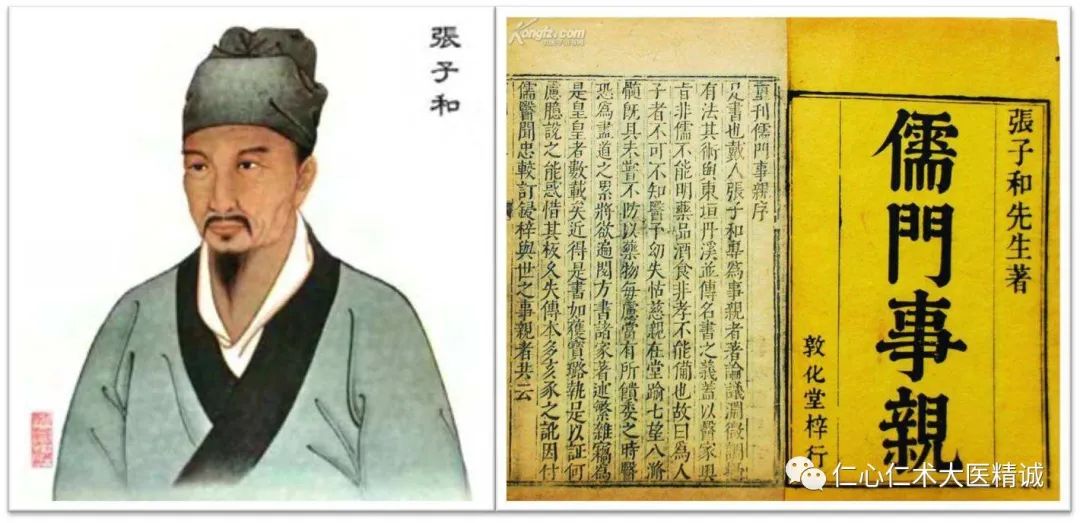 張子和
Kongfz.com
重刊儒門事親序
是書也戴人張子和專爲事親者著論議淵微調攝
有法其術與東垣丹溪並傳名書之義蓋以醫家奧
旨非儒不能明藥品酒食非孝不能備也故曰爲人
子者不可不知醫予幼失怙慈親在堂踰七望八滫
髓旣具未嘗不防以藥物每慮當有所饋委之時醫
恐爲盡道之累將欲遍閱方書諸家著述繁雜竊爲
是皇皇者數載矣近得是書如獲寳璐執足以証何
慮臆說之能惑惜其板久失傳本多亥豕之訛因付
儒醫聞忠較訂鋟梓與世之事親者共云
張子和先生著
儒門事親
敦化堂梓行
仁心仁术大医精诚